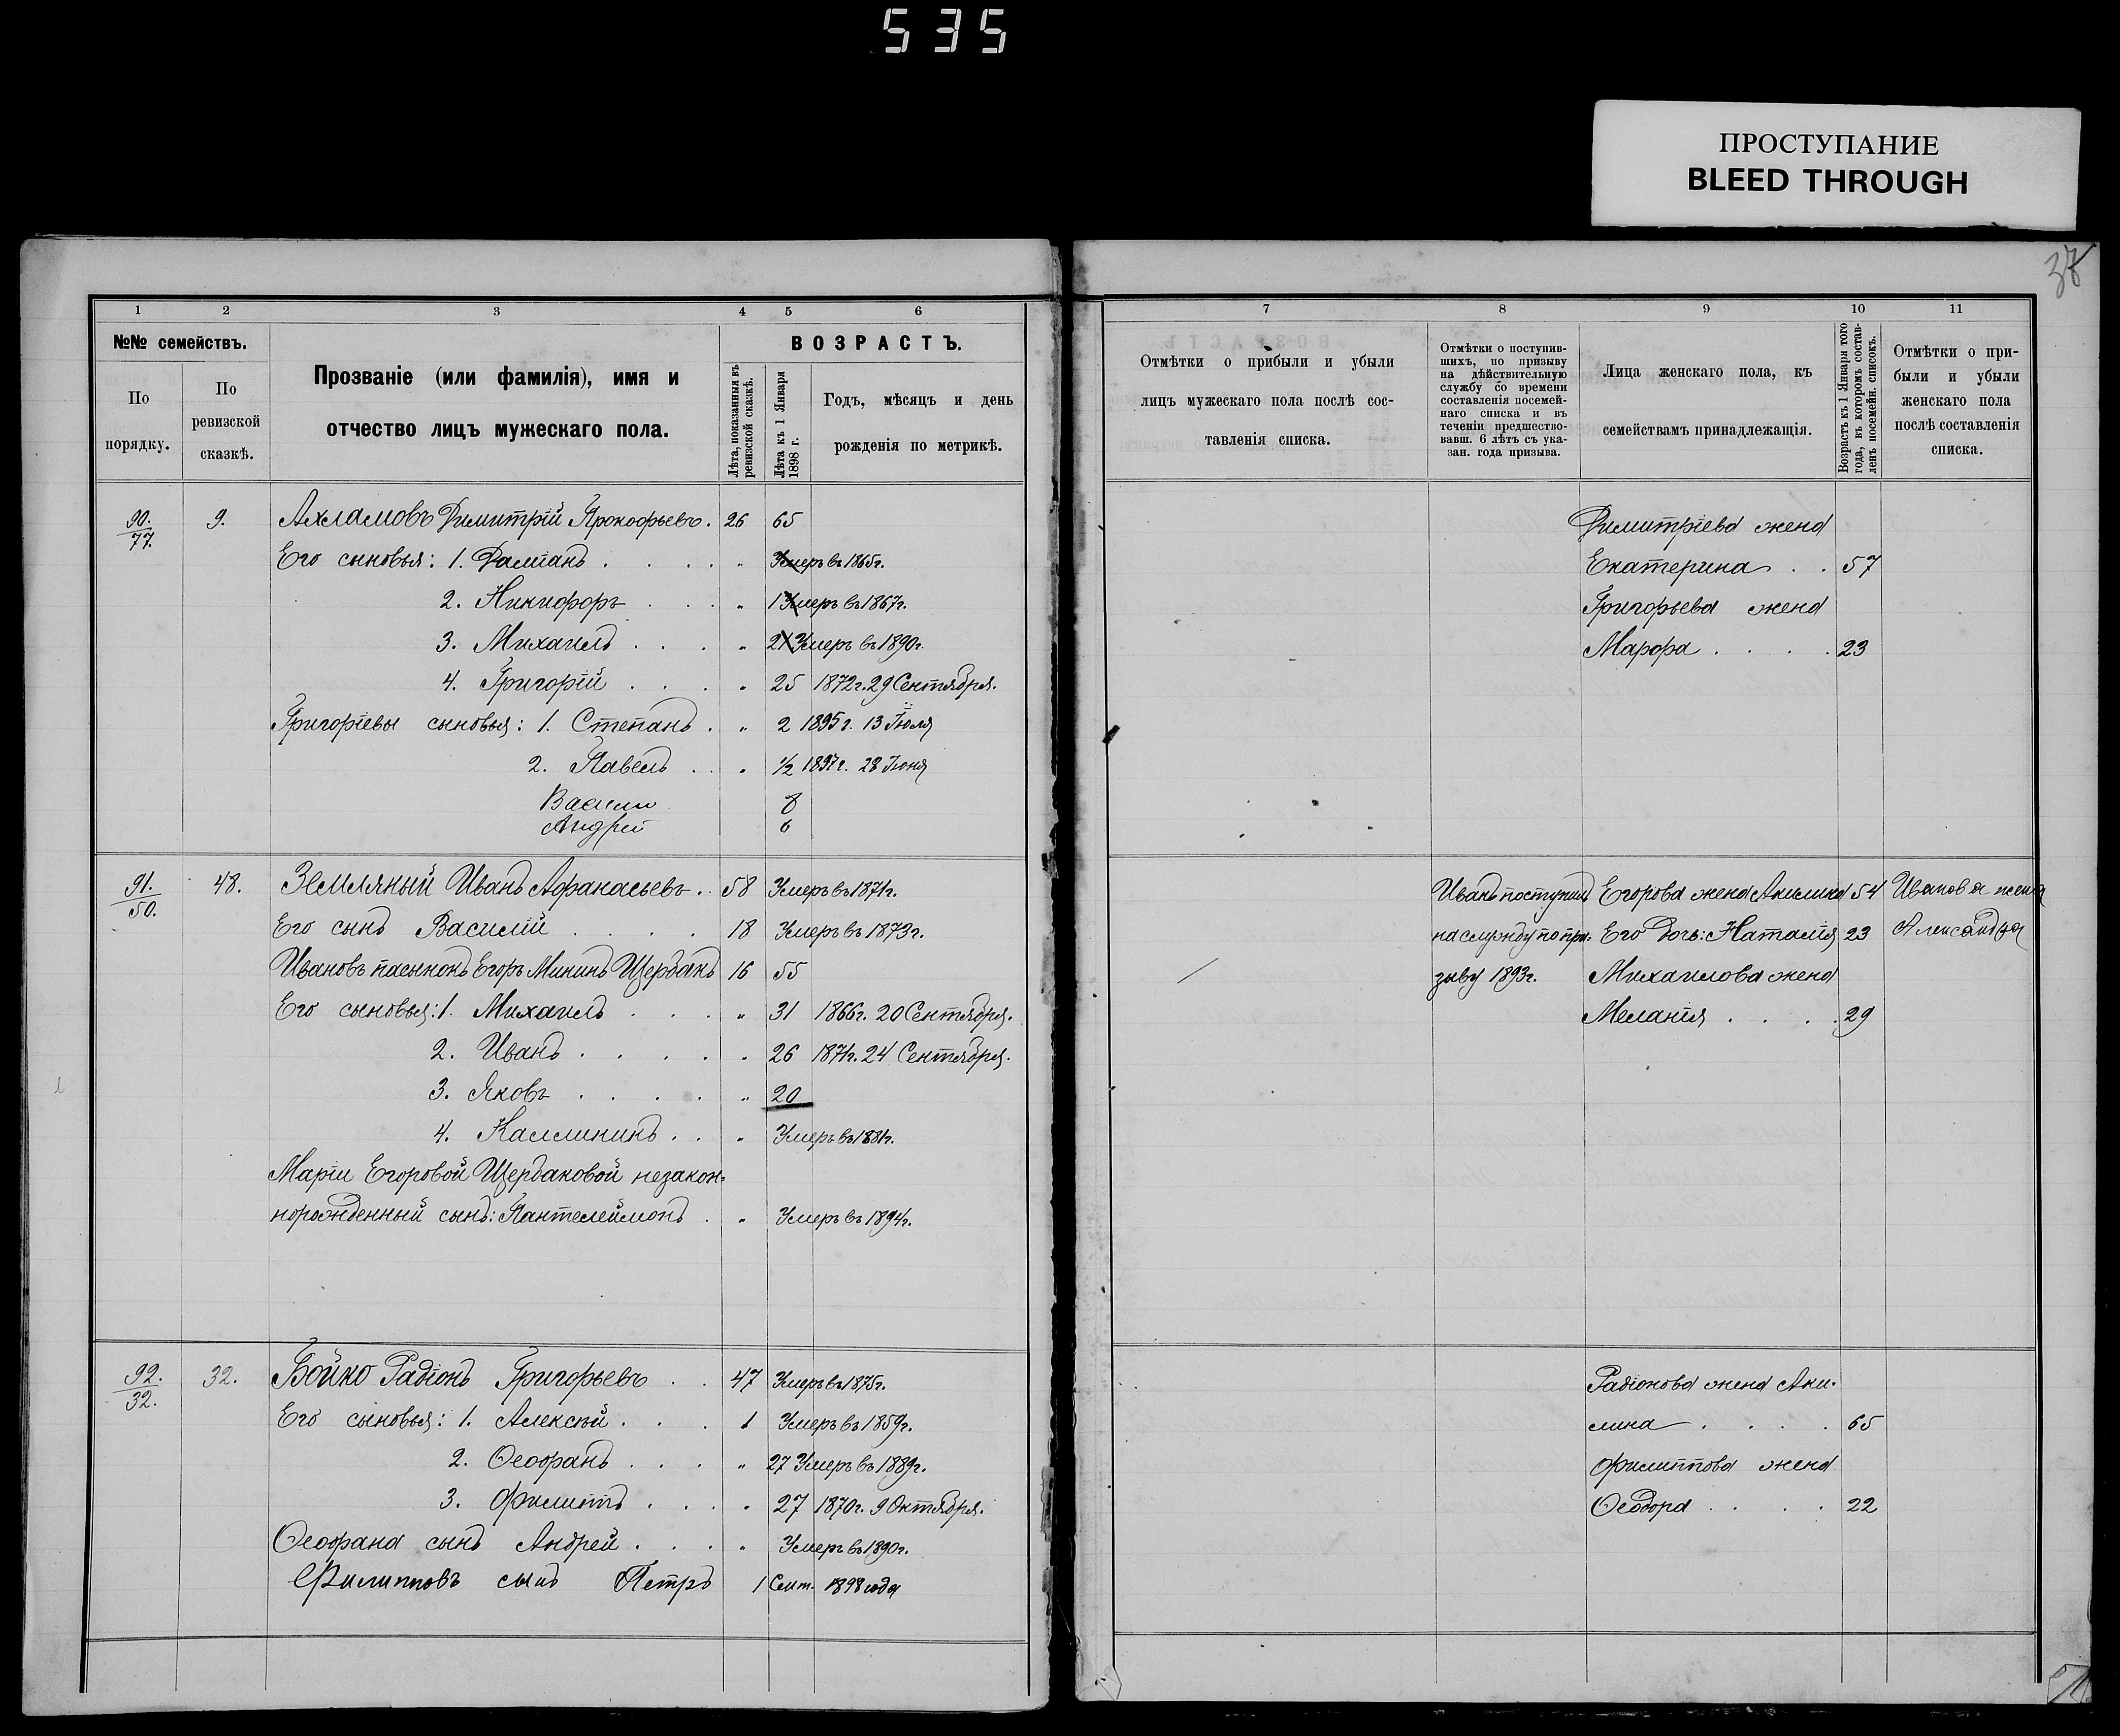 535
ПРОСТУПАНИЕ
BLEED THROUGH
38
1 2 3 4 5 6
№№ семействъ.
По порядку.
По ревизской сказкѣ.
Прозваніе (или фамилія), имя и
отчество лицъ мужескаго пола.
ВОЗРАСТЪ.
Лѣта, показанныя въ ревизской сказкѣ.
Лѣта къ 1 Января 1898 г.
Годъ, мѣсяцъ и день
рожденія по метрикѣ.
90. 77. 9. Ахламовъ Димитрій Прокофьевъ. 26 65
Его сыновья: 1. Даміанъ . . . . " Умеръ въ 1865г.
2. Никифоръ . . . " 1 Умеръ въ 1867г.
3. Михаилъ . . . " 21 Умеръ въ 1890г.
4. Григорій . . . " 25 1872г. 29 Сентября.
Григоріевы сыновья: 1. Степанъ . " 2 1895г. 13 Іюля
2. Павелъ . . " ½ 1897г. 28 Іюня
Василій 8
Андрей 6
91. 50. 48. Земляный Иванъ Афанасьевъ . . 58 Умеръ въ 1871г.
Его сынъ Василій . . . . 18 Умеръ въ 1873г.
Ивановъ пасынокъ Егоръ Мининъ Щербакъ 16 55
Его сыновья: 1. Михаилъ . . . " 31 1866г. 20 Сентября.
2. Иванъ . . . . " 26 1871г. 24 Сентября.
3. Яковъ . . . . " 20
4. Каллиникъ . . " Умеръ въ 1881г.
Маріи Егоровой Щербаковой незакон-
норожденный сынъ: Пантелеймонъ . " Умеръ въ 1894г.
92. 32. 32. Бойко Радіонъ Григорьевъ . . 47 Умеръ въ 1875г.
Его сыновья: 1. Алексѣй . . . 1 Умеръ въ 1859г.
2. Ѳеофанъ . . . " 27 Умеръ въ 1889г.
3. Филиппъ . . . " 27 1870г. 9 Октября.
Ѳеофана сынъ Андрей . . . " Умеръ въ 1890г.
Филипповъ сынъ Петръ 1 Сент. 1898 года
7 8 9 10 11
Отмѣтки о прибыли и убыли
лицъ мужескаго пола послѣ сос-
тавленія списка.
Отмѣтки о поступив-
шихъ, по призыву
на дѣйствительную
службу со времени
составленія посемей-
наго списка и въ
теченіи предшество-
вавш. 6 лѣтъ съ ука-
зан. года призыва.
Лица женскаго пола, къ
семействамъ принадлежащія.
Возрастъ къ 1 Января того
года, въ которомъ состав-
ленъ посемейн. списокъ.
Отмѣтки о при-
были и убыли
женскаго пола
послѣ составленія
списка.
Димитріева жена
Екатерина . . 57
Григорьева жена
Марфа . . . . 23
Иванъ поступилъ Егорова жена Акилина 54 Иванова жена
на службу по при- Его дочь: Наталія 23 Александра
зыву 1893г. Михаилова жена
Меланія . . . . 29
Радіонова жена Аки-
лина . . . . 65
Филиппова жена
Ѳеодора . . . . 22